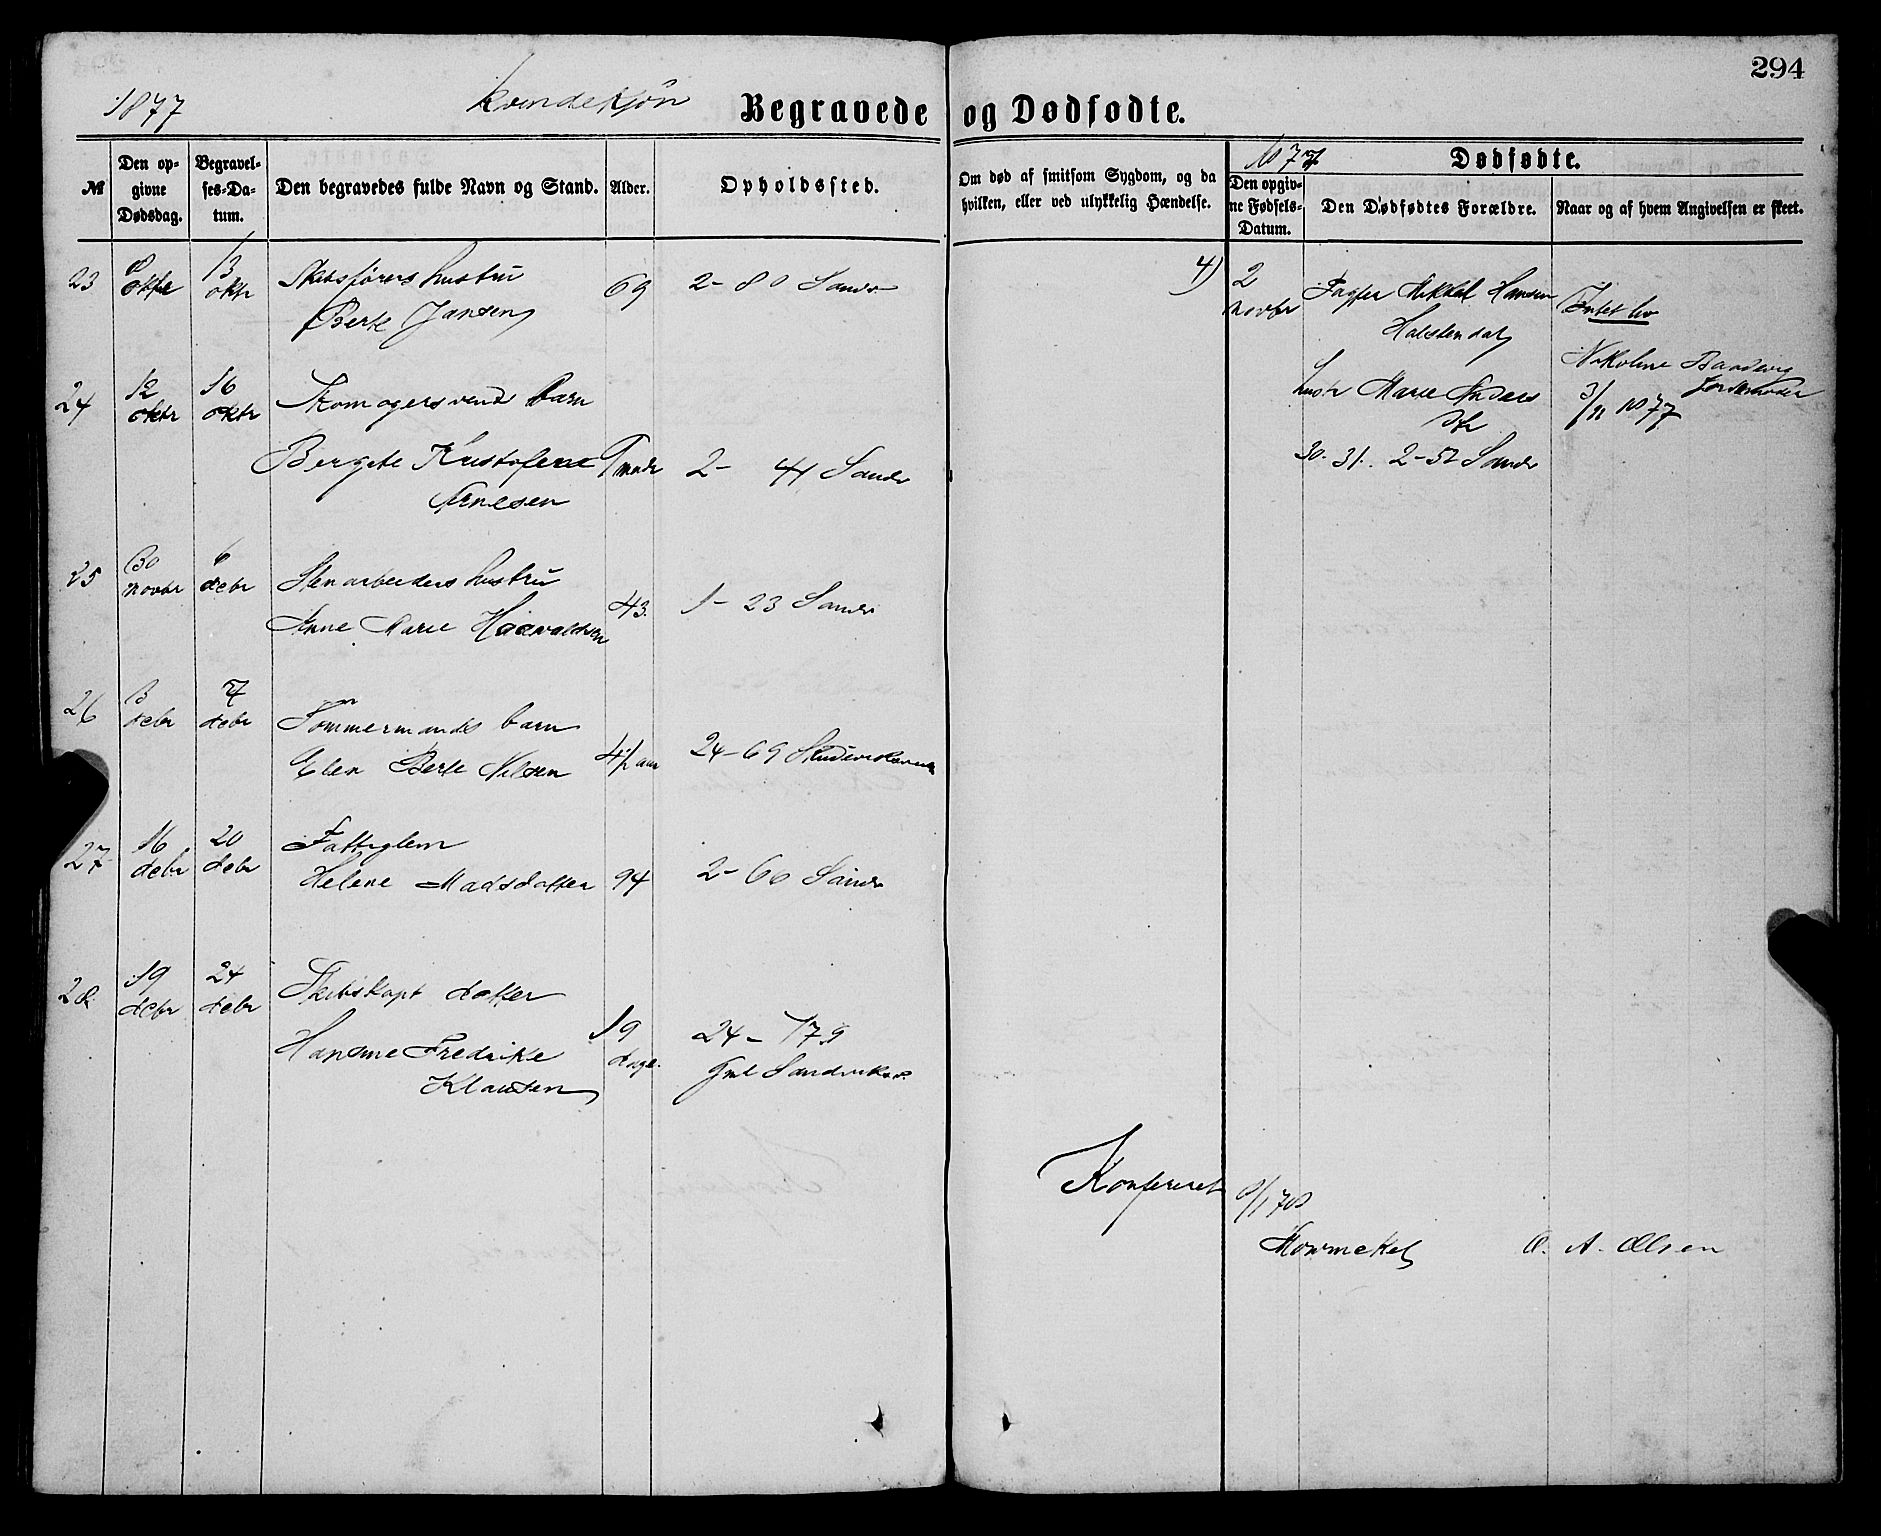 294
1877 Kvindekjøn Begravede og Dødfødte.
№ Den opgivne Dødsdag. Begravelses-Datum. Den begravedes fulde Navn og Stand. Alder. Opholdssted. Om død af smitsom Sygdom, og da hvilken, eller ved ulykkelig Hændelse.
1877 Dødfødte.
Den opgivne Fødsels-Datum. Den Dødfødtes Forældre. Naar og af hvem Angivelsen er skeet.
23 8 oktr 13 oktr Skibsførers hustru
Berte Jansen 69 2-80 Sandv
24 12 oktr 16 oktr Skomagersvends barn
Bergete Kristofene 9 mndr 2- 41 Sandv
Arnesen
25 30 novbr 6 debr Stenarbeiders hustru
Anne Marie Haavaldsen 43. 1-23 Sandv
26 3 debr 7 debr Tømmermands barn
Elen Berte Nilsen 4½ aar 24-69
27 16 debr 20 debr Fattiglem
Helene Madsdatter 94 2-60 Sandv
28 19 debr 24 debr Skibskapt datter
Hansine Fredrike 19 dage. 24-179
Klausen Gml Sandviksv.
4) 2 novbr Mikkel Hansen
Halstendal
hustr Marie Anders
dtr
30. 31. 2-52 Sandv
Intet liv
Nikoline
Jordemoder
3/11 1877
Konfereret 8/1 78
Mowinckel O. A. Olsen